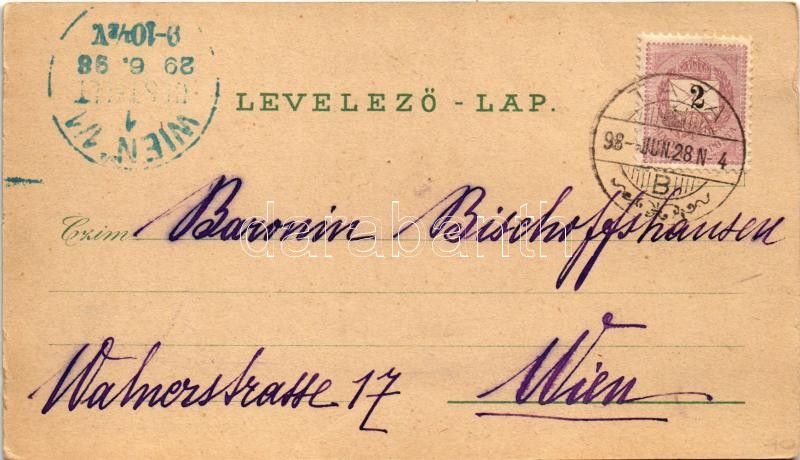 WIEN 1/1
1
BESTELLT
29 6. 98
9-10½V
LEVELEZŐ - LAP.
2
98-JUN.28 N-4
B
Czim Baronin Bischoffshausen
darabanth
Walnerstrasse 17 Wien